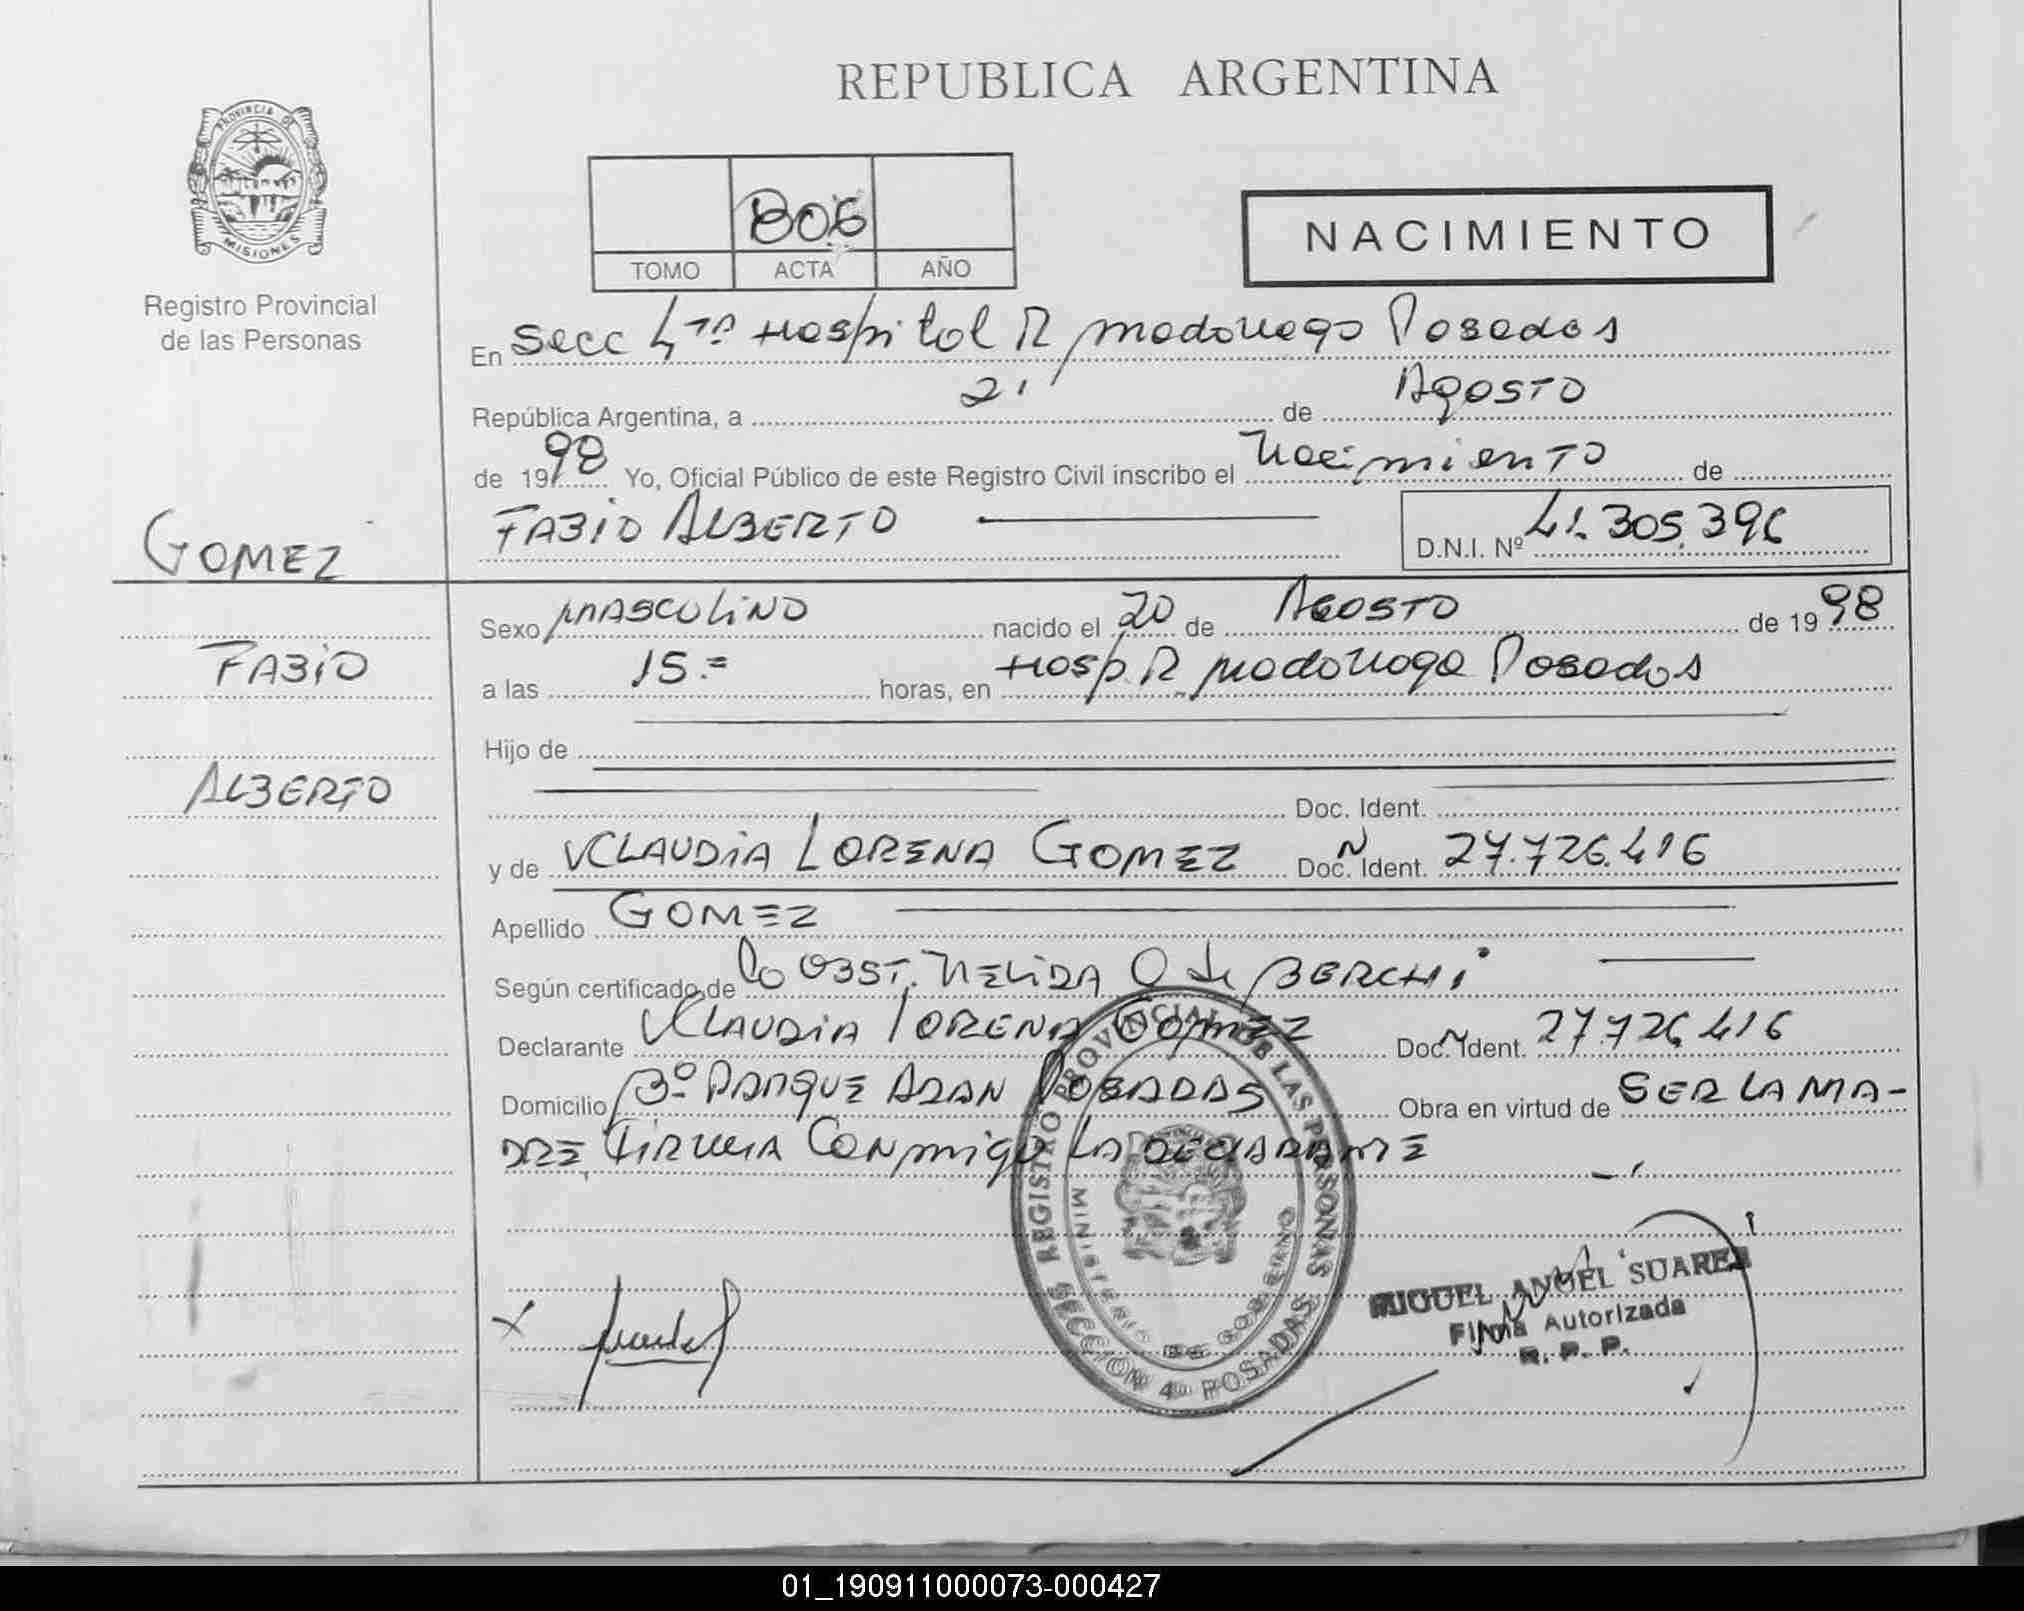 REPUBLICA ARGENTINA
PROVINCIA DE MISIONES
Registro Provincial
de las Personas
806
TOMO ACTA AÑO
NACIMIENTO
En Secc 4ta Hospital R Madariaga Posadas
República Argentina, a 21 de Agosto
de 1998 Yo, Oficial Público de este Registro Civil inscribo el Nacimiento de
FABIO ALBERTO D.N.I. Nº 41.305.396
GOMEZ
FABIO
ALBERTO
Sexo MASCULINO nacido el 20 de AGOSTO de 1998
a las 15.= horas, en Hosp. R Madariaga Posadas
Hijo de
Doc. Ident.
y de CLAUDIA LORENA GOMEZ Doc. N Ident. 27.726.416
Apellido GOMEZ
Según certificado de la OBST. NELIDA O de BERCHI
Declarante CLAUDIA LORENA GOMEZ Doc. N Ident. 27.726.416
Domicilio Bº PARQUE ADAN POSADAS Obra en virtud de SER LA MA-
DRE FIRMA CONMIGO LA DECLARANTE
REGISTRO PROVINCIAL DE LAS PERSONAS
MINISTERIO DE GOBIERNO
SECCION 4a POSADAS
MIGUEL ANGEL SUAREZ
Firma Autorizada
R. P. P.
01_190911000073-000427